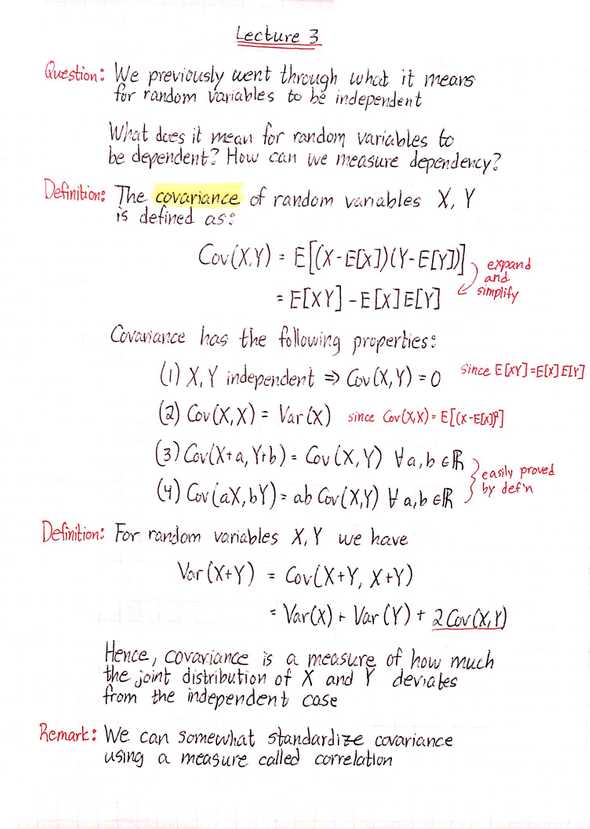 Lecture 3
Question: We previously went through what it means
for random variables to be independent
What does it mean for random variables to
be dependent? How can we measure dependency?
Definition: The covariance of random variables X, Y
is defined as:
Cov(X,Y) = E[(X-E[X])(Y-E[Y])]
= E[XY] - E[X]E[Y]
expand
and
simplify
Covariance has the following properties:
(1) X, Y independent ⇒ Cov(X,Y) = 0 since E[XY]=E[X]E[Y]
(2) Cov(X,X) = Var(X) since Cov(X,X) = E[(X-E[X])²]
(3) Cov(X+a, Y+b) = Cov(X,Y) ∀a,b∈ℝ
(4) Cov(aX,bY) = ab Cov(X,Y) ∀a,b∈ℝ
easily proved
by def'n
Definition: For random variables X, Y we have
Var(X+Y) = Cov(X+Y, X+Y)
= Var(X) + Var(Y) + 2Cov(X,Y)
Hence, covariance is a measure of how much
the joint distribution of X and Y deviates
from the independent case
Remark: We can somewhat standardize covariance
using a measure called correlation